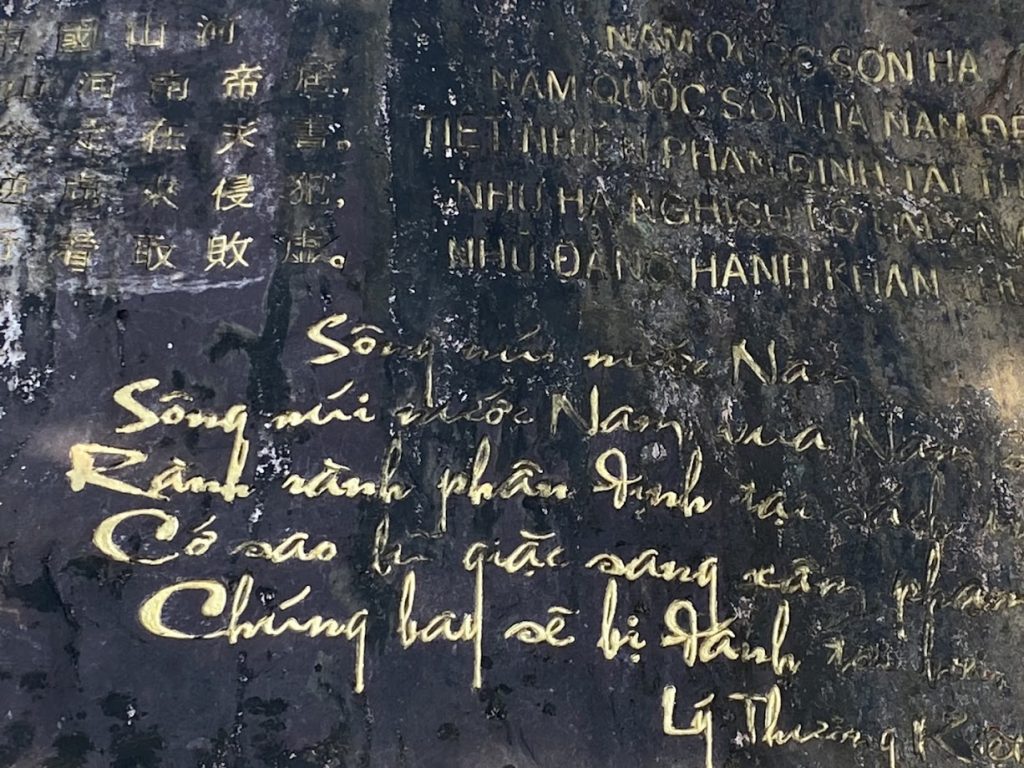 國山河
山河南帝居,
定在天書。
虜來侵犯,
看取敗虛。
NAM QUỐC SƠN HÀ
NAM QUỐC SƠN HÀ NAM ĐẾ
TIỆT NHIÊN PHÂN ĐỊNH TẠI
NHƯ HÀ NGHỊCH LỖ LAI XÂM
NHỮ ĐẲNG HÀNH KHAN
Sông núi nước Nam
Sông núi nước Nam, vua Nam
Rành rành phân định tại sách
Có sao lũ giặc sang xâm phạm
Chúng bay sẽ bị đánh tơi bời
Lý Thường Kiệt